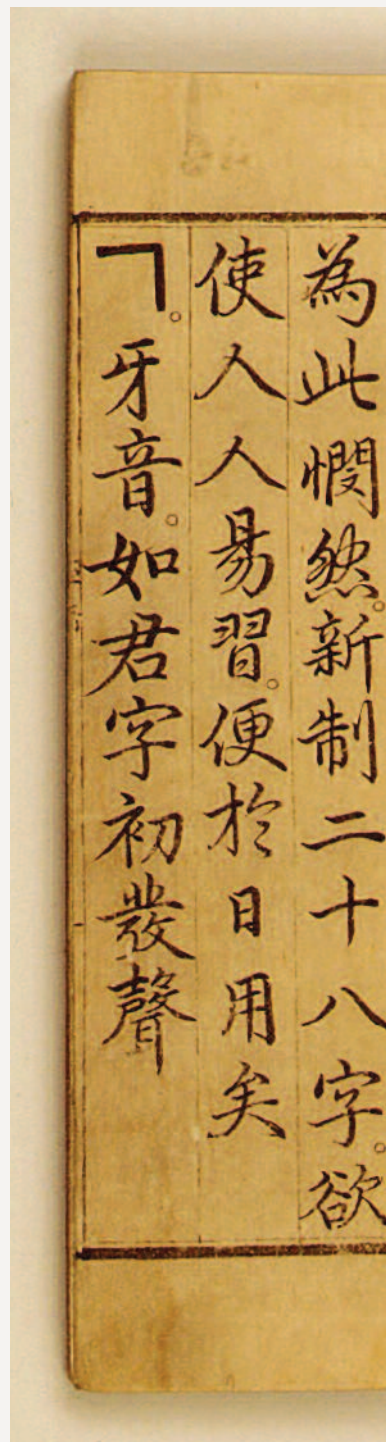 為此憫然。新制二十八字。欲
使人人易習。便於日用矣
ㄱ。牙音。如君字初發聲